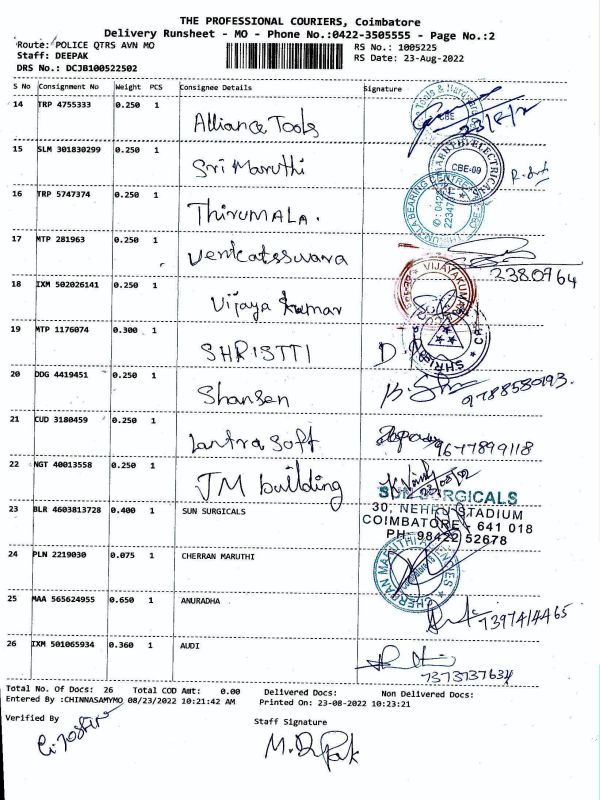 THE PROFESSIONAL COURIERS, Coimbatore
Delivery Runsheet - MO - Phone No.:0422-3505555 - Page No.:2
Route: POLICE QTRS AVN MO RS No.: 1005225
Staff: DEEPAK RS Date: 23-Aug-2022
DRS No.: DCJB100522502
S No Consignment No Weight PCS Consignee Details Signature
14 TRP 4755333 0.250 1 Alliance Tools
15 SLM 301830299 0.250 1 Sri Maruthi
CBE-09
16 TRP 5747374 0.250 1 THIRUMALA.
THIRUMALA BEARING CENTRE
17 MTP 281963 0.250 1 Venkatsswara
2380764
18 IXM 502026141 0.250 1 Vijaya Kumar
VIJAYAKUMAR
19 MTP 1176074 0.300 1 SHRISTTI
20 DDG 4419451 0.250 1 Shansen 9788580193.
21 CUD 3180459 0.250 1 Lantra Soft 9677899118
22 NGT 40013558 0.250 1 JM building
23 BLR 4603813728 0.400 1 SUN SURGICALS
SUN SURGICALS
30, NEHRU STADIUM
COIMBATORE - 641 018
PH: 98422 52678
24 PLN 2219030 0.075 1 CHERRAN MARUTHI
CHERRAN MARUTHI AGENCIES
25 MAA 565624955 0.650 1 ANURADHA
7397414465
26 IXM 501065934 0.360 1 AUDI
7373737634
Total No. Of Docs: 26 Total COD Amt: 0.00 Delivered Docs: Non Delivered Docs:
Entered By :CHINNASAMYMO 08/23/2022 10:21:42 AM Printed On: 23-08-2022 10:23:21
Verified By Staff Signature